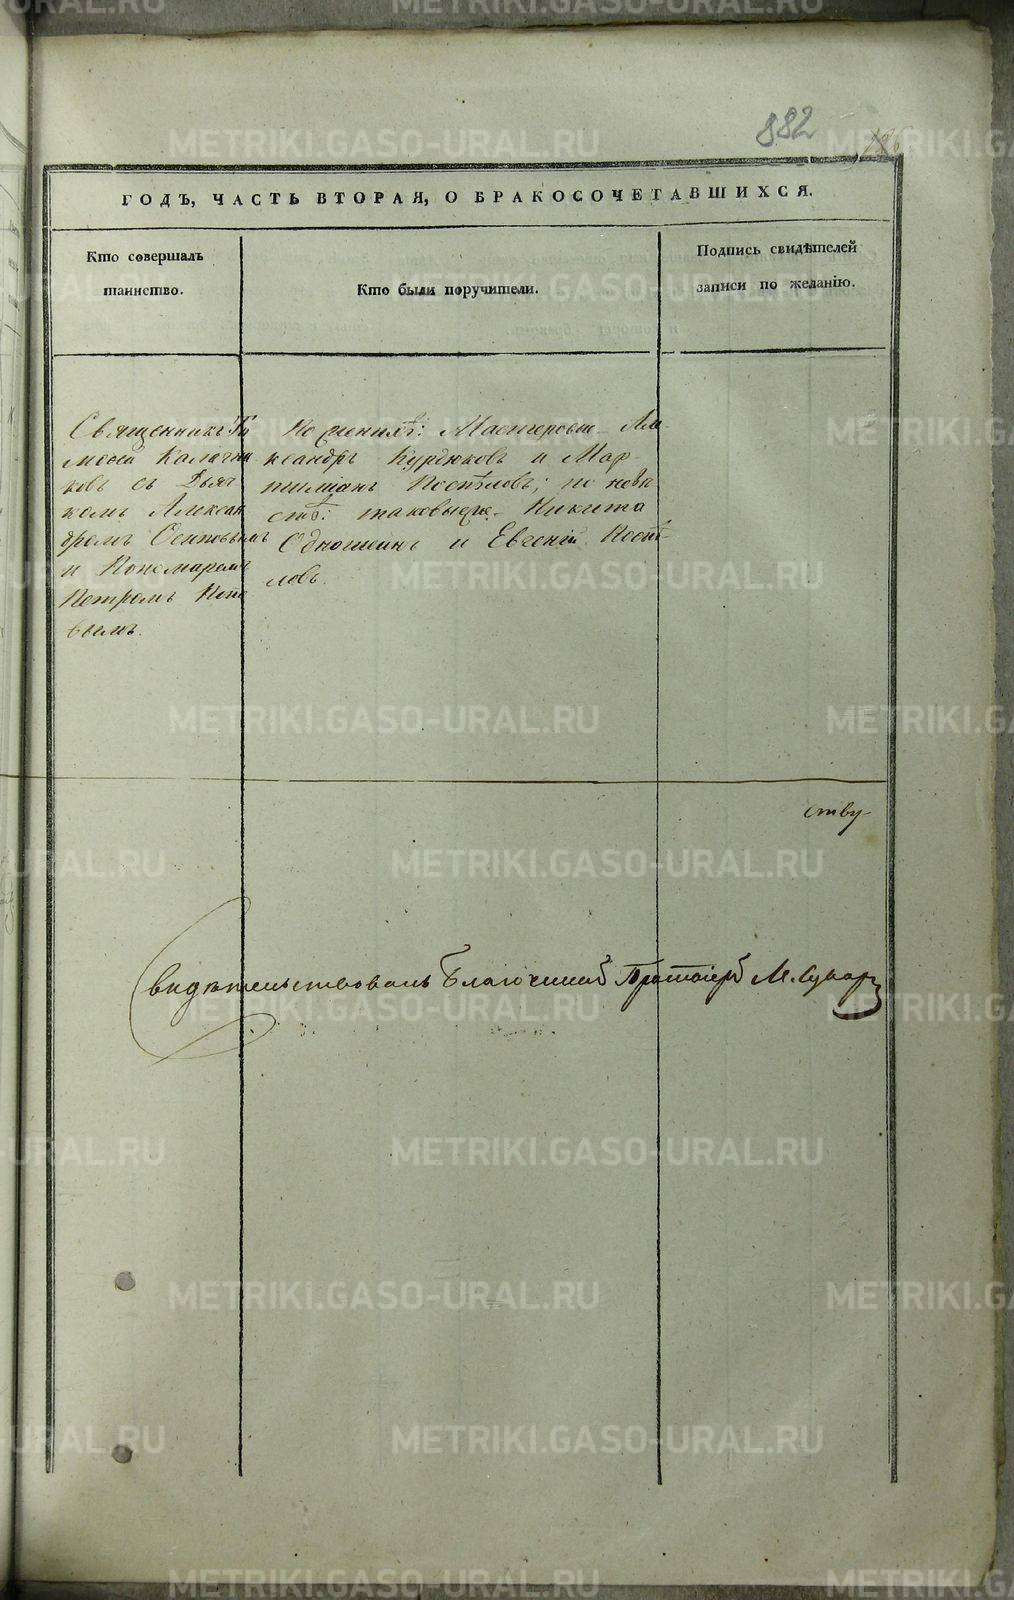 882
ГОДЪ, ЧАСТЬ ВТОРАЯ, О БРАКОСОЧЕТАВШИХСЯ.
Кто совершалъ
таинство.
Кто были поручители.
Подпись свидѣтелей
записи по желанію.
Священникъ Ти
моѳей Калачни
ковъ съ Дьяч
комъ Алексан
дромъ Осиповымъ
и Пономаремъ
Петромъ Попо
вымъ.
По женихѣ: Мастеровые Але
ксандръ Курдюковъ и Мар
тиміанъ Поспѣловъ; по невѣ
стѣ: таковыеже Никита
и Евгеній Поспѣ
ловъ.
ству
Свидѣтельствовалъ Благочинный Протоіерей М.
METRIKI.GASO-URAL.RU